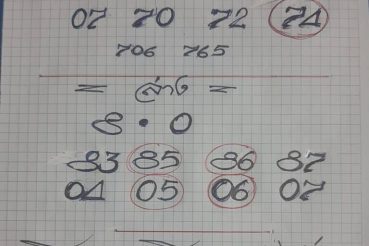 07 70 72 74
706 765
= ล่าง =
8 • 0
83 85 86 87
04 05 06 07